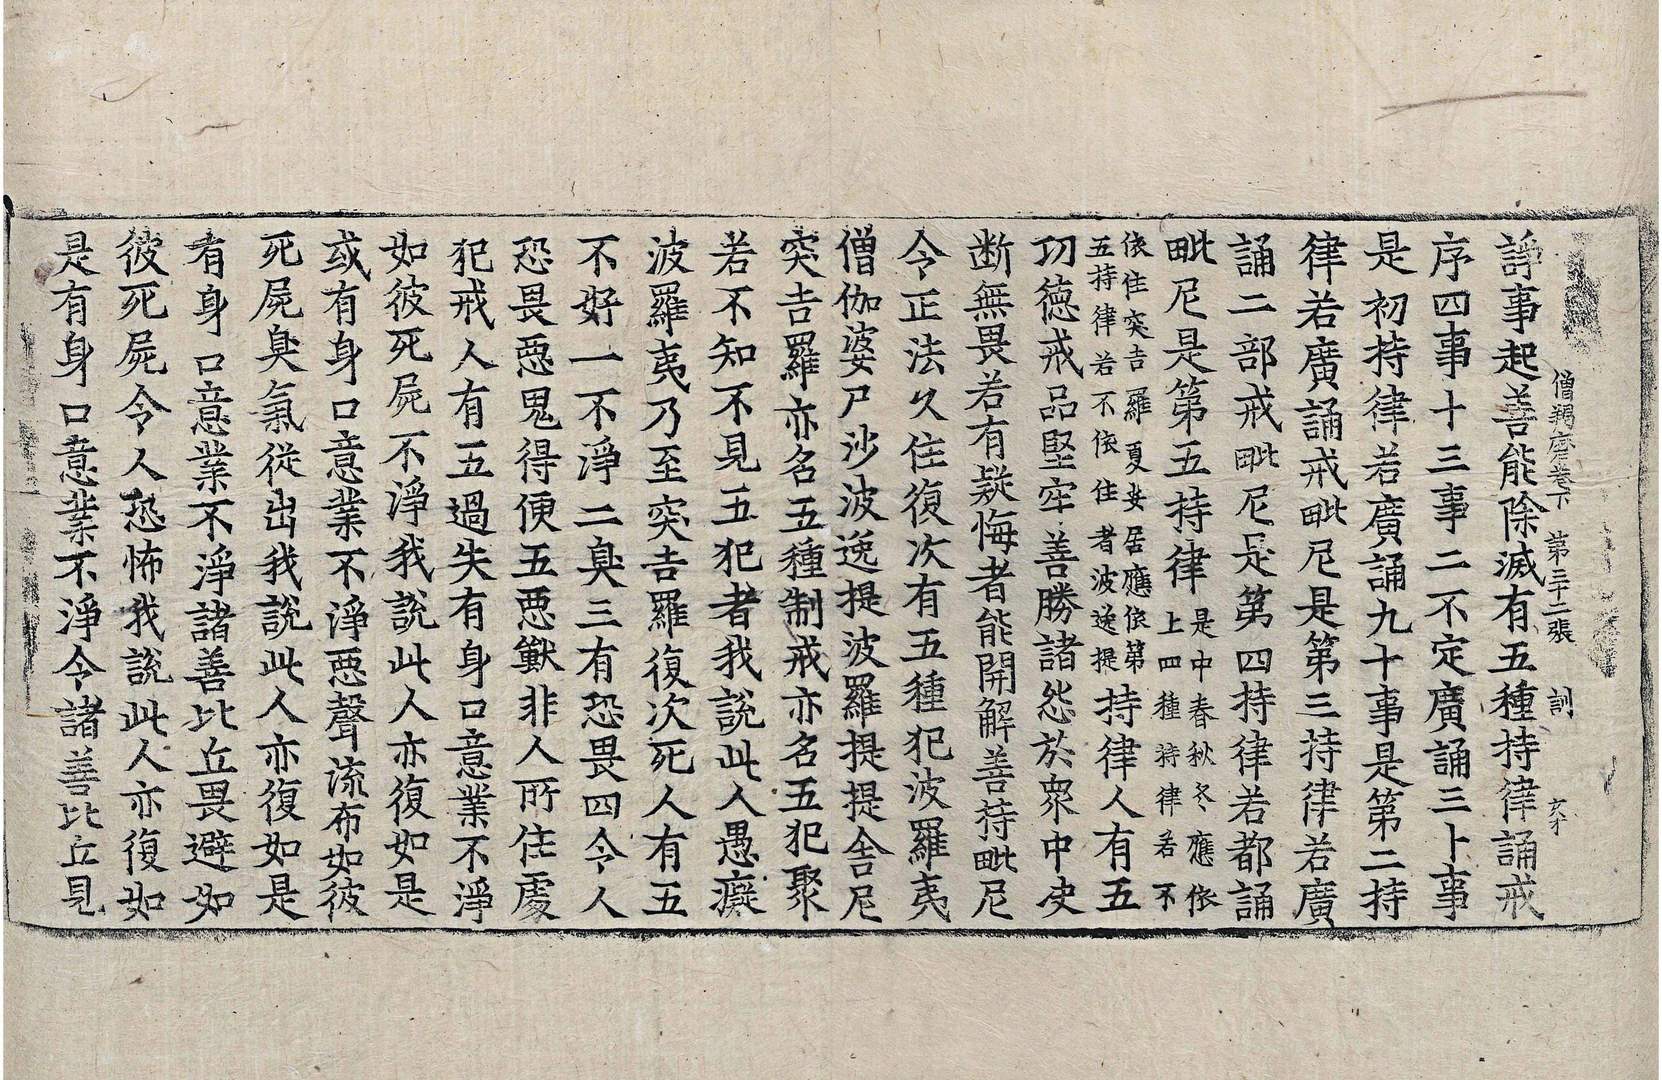 僧羯磨卷下 第三十二張 訓
諍事起善能除滅有五種持律誦戒
序四事十三事二不定廣誦三十事
是初持律若廣誦九十事是第二持
律若廣誦戒毗尼是第三持律若廣
誦二部戒毗尼是第四持律若都誦
毗尼是第五持律是中春秋冬應依上四種持律若不
依住突吉羅夏安居應依第五持律若不依住者波逸提持律人有五
功德戒品堅牢善勝諸怨於衆中決
断無畏若有疑悔者能開解善持毗尼
令正法久住復次有五種犯波羅夷
僧伽婆尸沙波逸提波羅提提舍尼
突吉羅亦名五種制戒亦名五犯聚
若不知不見五犯者我說此人愚癡
波羅夷乃至突吉羅復次死人有五
不好一不淨二臭三有恐畏四令人
恐畏惡鬼得便五惡獸非人所住處
犯戒人有五過失有身口意業不淨
如彼死屍不淨我說此人亦復如是
或有身口意業不淨惡聲流布如彼
死屍臭氣從出我說此人亦復如是
有身口意業不淨諸善比丘畏避如
彼死屍令人恐怖我說此人亦復如
是有身口意業不淨令諸善比丘見